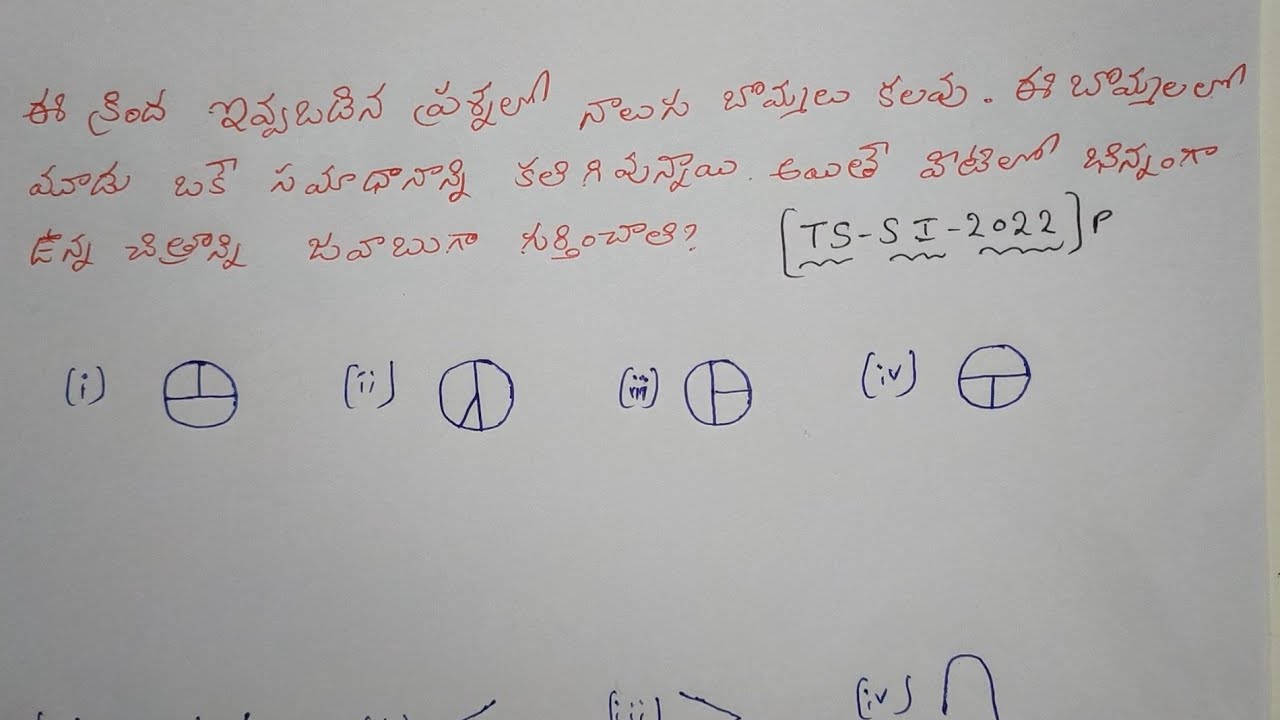 ఈ క్రింద ఇవ్వబడిన ప్రశ్నలో నాలుగ బొమ్మలు కలవు. ఈ బొమ్మలలో
మూడు ఒకే సమాధానాన్ని కలిగివున్నాయి. అయితే వీటిలో భిన్నంగా
ఉన్న చిత్రాన్ని జవాబుగా గుర్తించాలి? [TS-SI-2022]P
(i) (ii) (iii) (iv)
(iii) (iv)